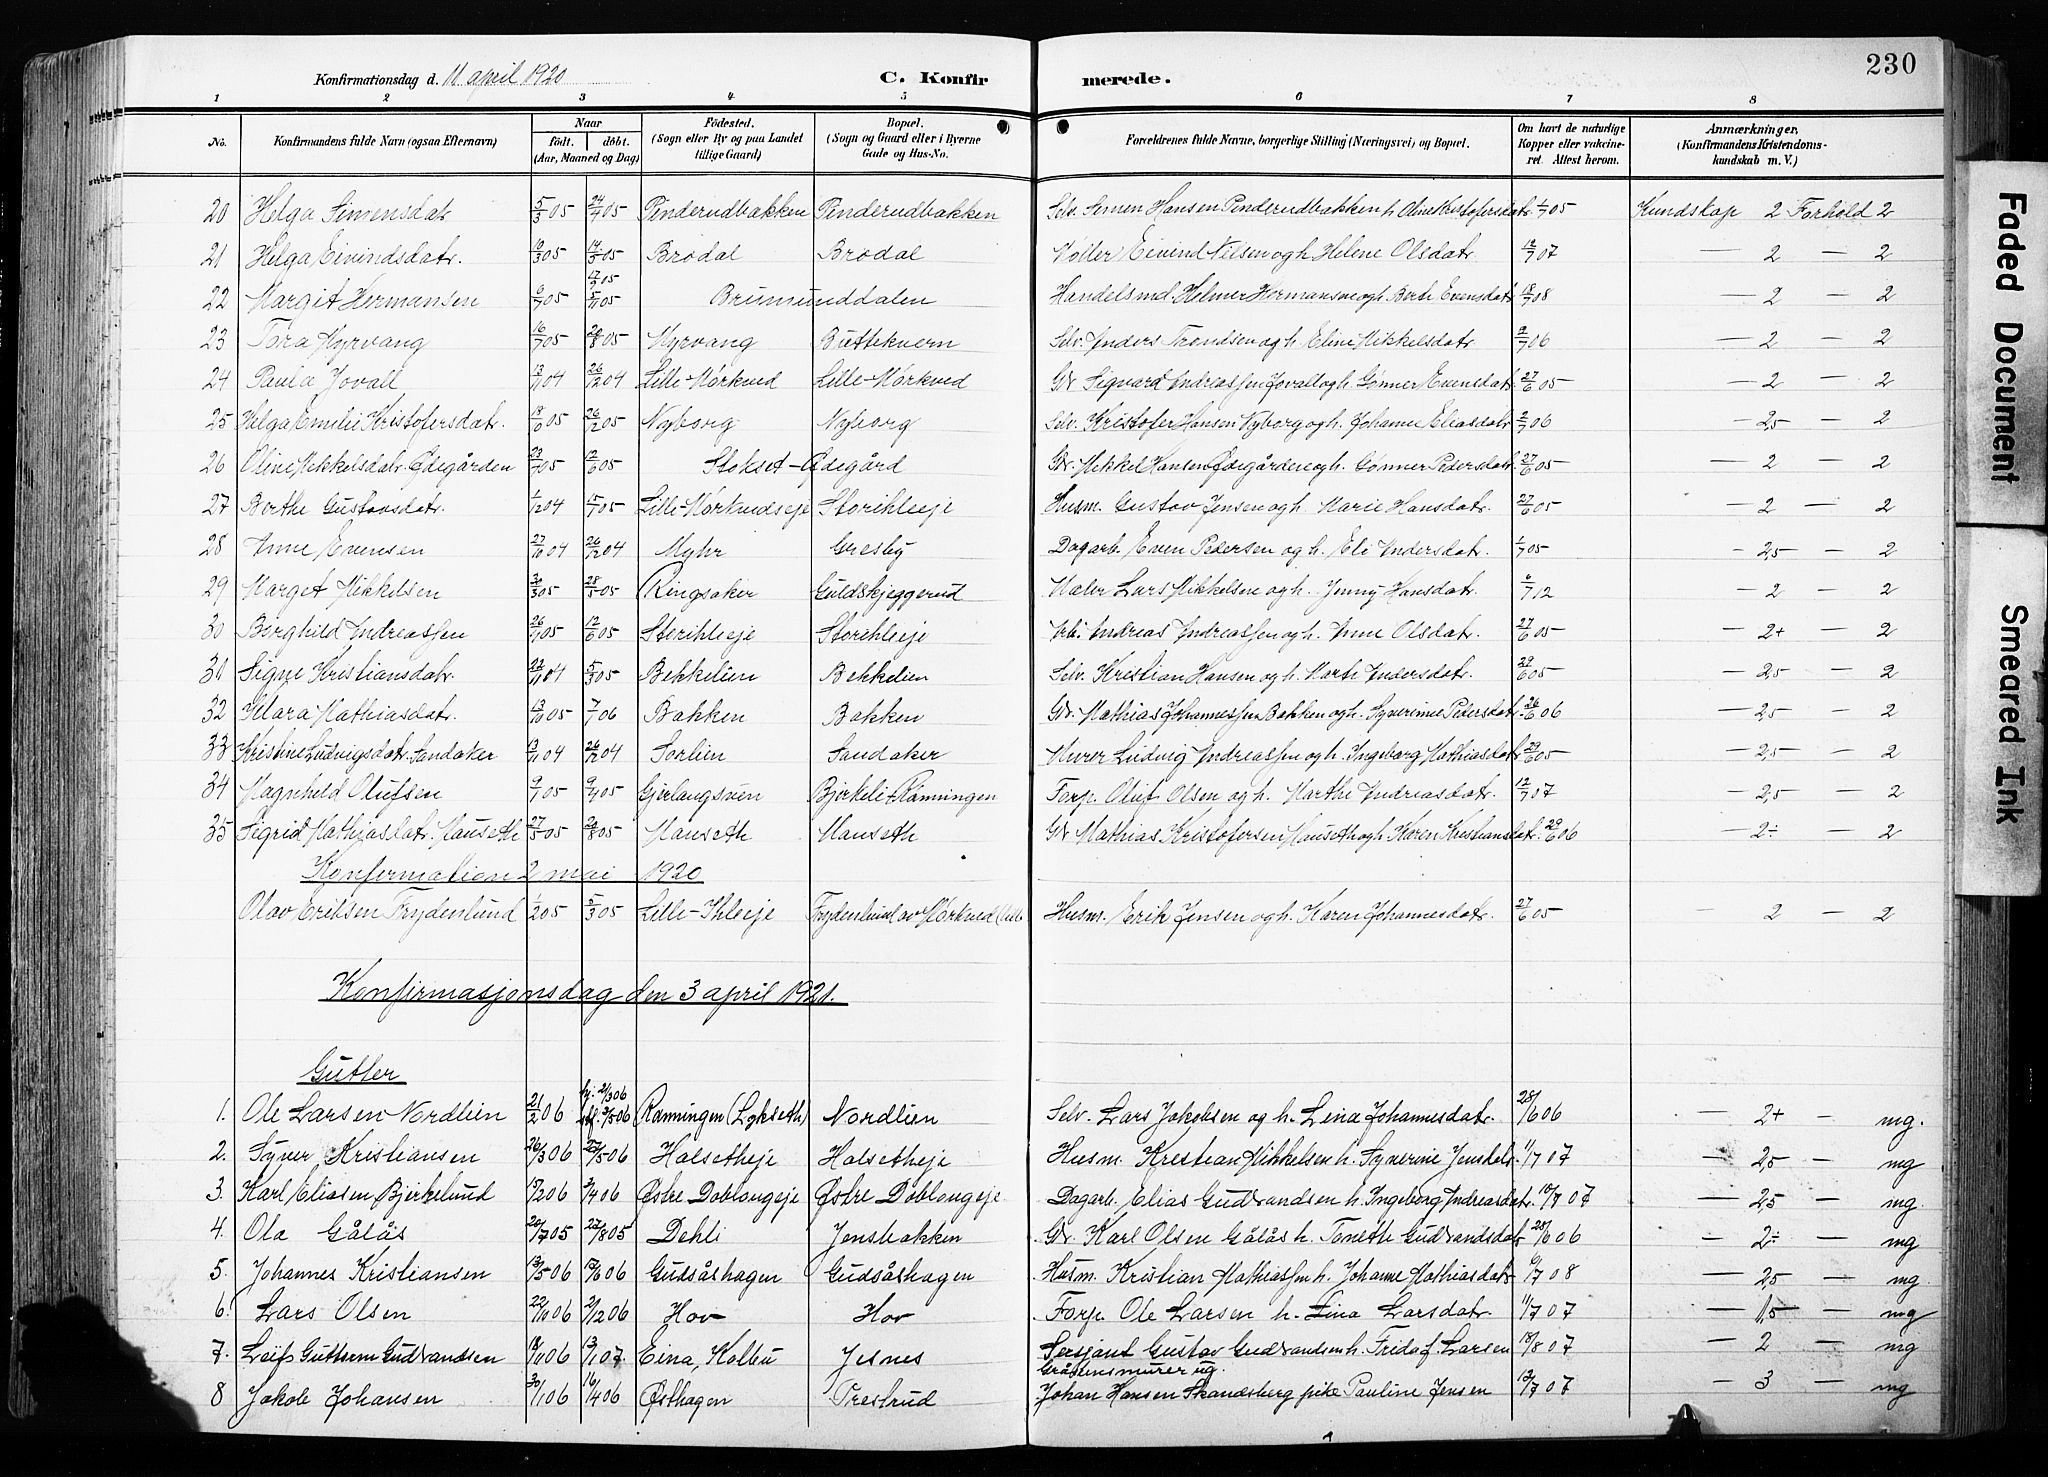 230
Konfirmationsdag d. 11. april 1920 C. Konfirmerede.
1 2 3 4 5 6 7 8
No. Konfirmandens fulde Navn (ogsaa Efternavn) Naar født. døbt. (Aar, Maaned og Dag) Fødested. (Sogn eller By og paa Landet tillige Gaard) Bopæl. (Sogn og Gaard eller i Byerne Gade og Hus-No. Forældrenes fulde Navne, borgerlige Stilling (Næringsvei) og Bopæl. Om havt de naturlige Kopper eller vakcineret. Attest herom. Anmærkninger, (Konfirmandens Kristendomskundskab m. V.)
20 Helga Simensdat 5/3 05 24/4 05 Pinderudbakken Pinderudbakken Selv. Simen Hansen Pinderudbakken h. Oline Kristofersdatr. 1/7 05 Kundskap 2 Forhold 2
21 Helga Eivindsdatr. 10/3 05 14/5 05 Brodal Brodal Eivind Nilsen og h. Helene Olsdatr. 12/7 07 — 2 — 2
22 Margit Hermansen 6/7 05 17/7 05 5/11 05 Brumunddalen Handelsmd. Helmer Hermansen og h. Berte Evensdatr. 18/7 08 — 2 — 2
23 Tora Myrvang 16/7 05 20/8 05 Myrvang Buttekvern Selv. Anders Trondsen og h. Eline Mikkelsdatr 9/7 06 — 2 — 2
24 Paula Jovall 13/11 04 26/12 04 Lille-Mörkved Lille-Mörkved Gbr. Sigvard Andreassen Jovall og h. Gönner Evensdatr. 27/6 05 — 2 — 2
25 Helga Emilie Kristofersdatr. 18/6 05 26/12 05 Nyborg Nyborg Selv. Kristofer Hansen Nyborg og h. Johanne Eliasdatr 2/7 06 — 2,5 — 2
26 Oline Mikkelsdatr. Ødegården 23/4 05 12/6 05 Stokset-Ødegård Gbr. Mikkel Hansen Ødegården og h. Gönner Pedersdatr. 27/6 05 — 2 — 2
27 Berthe Gustavsdatr. 1/12 04 15/1 05 Lille-Mörkvedseje Storihleeje Husm. Gustav Jensen og h. Marie Hansdatr. 27/6 05 — 2 — 2
28 Anne Evensen 27/10 04 26/12 04 Myhr Gresby Dagarb. Even Pedersen og h. Eli Andersdatr. 1/7 05 — 2,5 — 2
29 Marget Mikkelsen 30/3 05 28/5 05 Ringsaker Guldskjeggerud Maler Lars Mikkelsen og h. Jenny Hansdatr. 6/7 12 — 2 — 2
30 Borghild Andreassen 26/4 05 12/6 05 Storihleeje Storihleeje Arb. Andreas Andreassen og h. Anne Olsdatr. 27/6 05 — 2+ — 2
31 Signe Kristiansdatr. 22/11 04 5/3 05 Bekkelien Bekkelien Selv. Kristian Hansen og h. Marte Andersdatr. 29/6 05 — 2,5 — 2
32 Klara Mathiasdatr. 13/10 05 7/1 06 Bakken Bakken Gbr. Mathias Johannessen Bakken og h. Synerine Pedersdatr. 26/6 06 — 2,5 — 2
33 Kristine Ludvigsdatr. Sandaker 13/11 04 26/12 04 Sorlien Sandaker Murer Ludvig Andreassen og h. Ingeborg Mathiasdatr 29/6 05 — 2,5 — 2
34 Magnhild Olufsen 9/1 05 9/4 05 Gjerlangsven Bjerkeli-Ramningen Forp. Oluf Olsen og h. Marthe Andreasdatr. 12/7 07 — 2,5 — 2
35 Sigrid Mathiasdatr. Mauseth 27/5 05 20/8 05 Mauseth Mauseth Gbr Mathias Kristofersen Mauseth og h. Karen Kristiansdatr. 29/6 06 — 2÷ — 2
Konfirmation 2 mai 1920
Olav Eriksen Frydenlund 1/2 05 5/3 05 Lille-Ihleeje Frydenlund av Mörkved Lille Husm. Erik Jensen og h. Karen Johannesdatr. 27/6 05 — 2 — 2
Konfirmasjonsdag den 3 april 1921.
Gutter
1. Ole Larsen Nordlien 21/2 06 hj. 2/3 06 stf. 3/5 06 Ramningen (Lykseth) Nordlien Selv. Lars Jakobsen og h. Lina Johannesdatr. 28/6 06 — 2+ — mg.
2. Syver Kristiansen 26/3 06 27/5 06 Halsetheje Halsetheje Husm. Kristian Mikkelsen h. Synerine Jensdatr. 11/7 07 — 2,5 — mg
3. Karl Eliasen Bjerkelund 17/2 06 3/4 06 Østre Doblougeje Østre Doblougeje Dagarb. Elias Gudbrandsen h. Ingeborg Andreasdatr. 10/7 07 — 2,5 — mg
4. Ola Gålås 20/7 05 27/8 05 Dehli Jensbakken Gbr. Karl Olsen Gålås h. Tonette Gudbrandsdatr 28/6 06 — 2÷ — mg
5. Johannes Kristiansen 13/5 06 17/6 06 Gudsåshagen Gudsåshagen Husm. Kristian Mathiassen h. Johanne Mathiasdatr 9/7 08 — 2,5 — mg
6. Lars Olsen 22/10 06 2/12 06 Hov Hov Forp. Ole Larsen h. Lina Larsdatr. 11/7 07 — 1,5 — mg
7. Leif Guttorm Gudbrandsen 18/11 06 13/1 07 Eina, Kolbu Jesnes Sersjant Gustav Gudbrandsen h. Frida f. Larsen 13/8 07 — 2 — mg
8 Jakob Johansen 30/1 06 16/4 06 Østhagen Prestrud Gråstensmurer ug. Johan Hansen Skandsberg pike Pauline Jensen 12/7 07 — 3 — mg
Faded Document
Smeared Ink